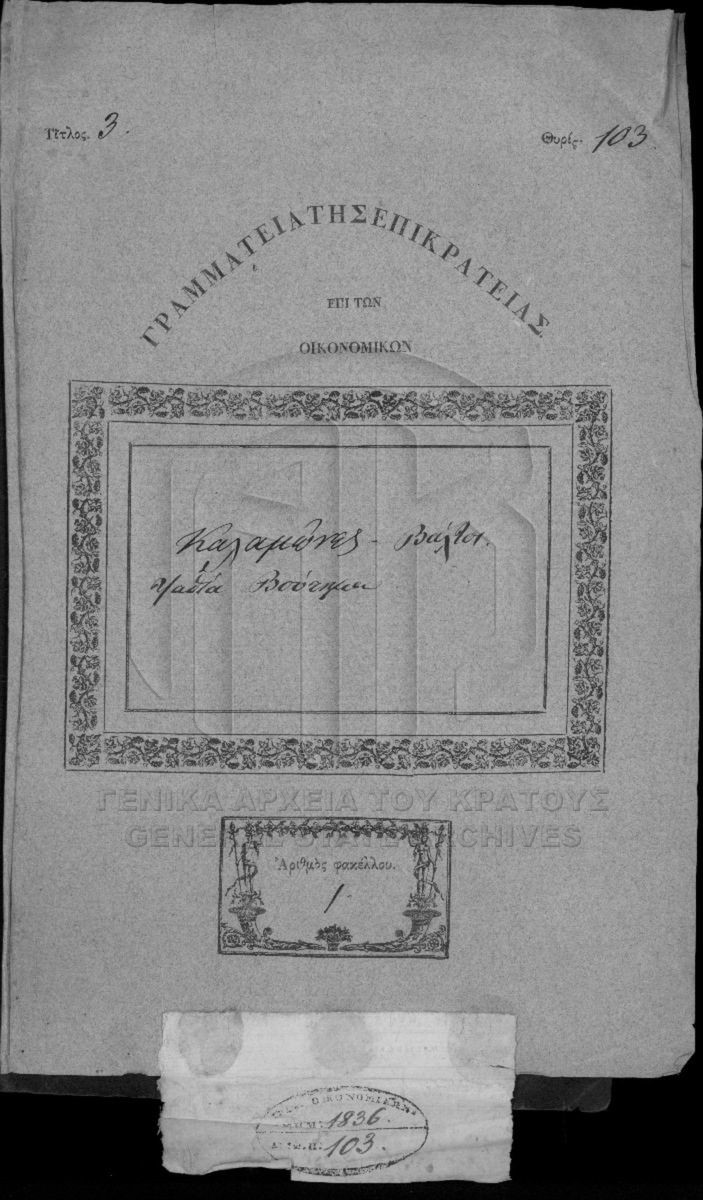 Τίτλος. 3.
Θυρίς. 103.
ΓΡΑΜΜΑΤΕΙΑ ΤΗΣ ΕΠΙΚΡΑΤΕΙΑΣ
ΕΠΙ ΤΩΝ
ΟΙΚΟΝΟΜΙΚΩΝ
Καλαμῶνες - Βάλτοι.
Βούτημα
ΓΕΝΙΚΑ ΑΡΧΕΙΑ ΤΟΥ ΚΡΑΤΟΥΣ
GENERAL STATE ARCHIVES
Ἀριθμὸς φακέλλου.
1.
1836.
103.